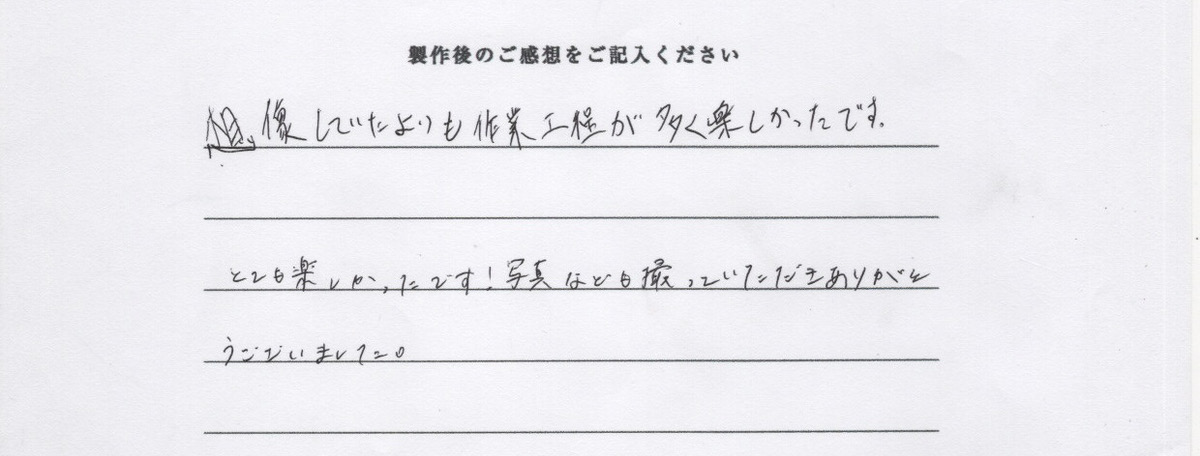 製作後のご感想をご記入ください
想像していたよりも作業工程が多く楽しかったです。
とても楽しかったです!写真なども撮っていただきありがと
うございました。